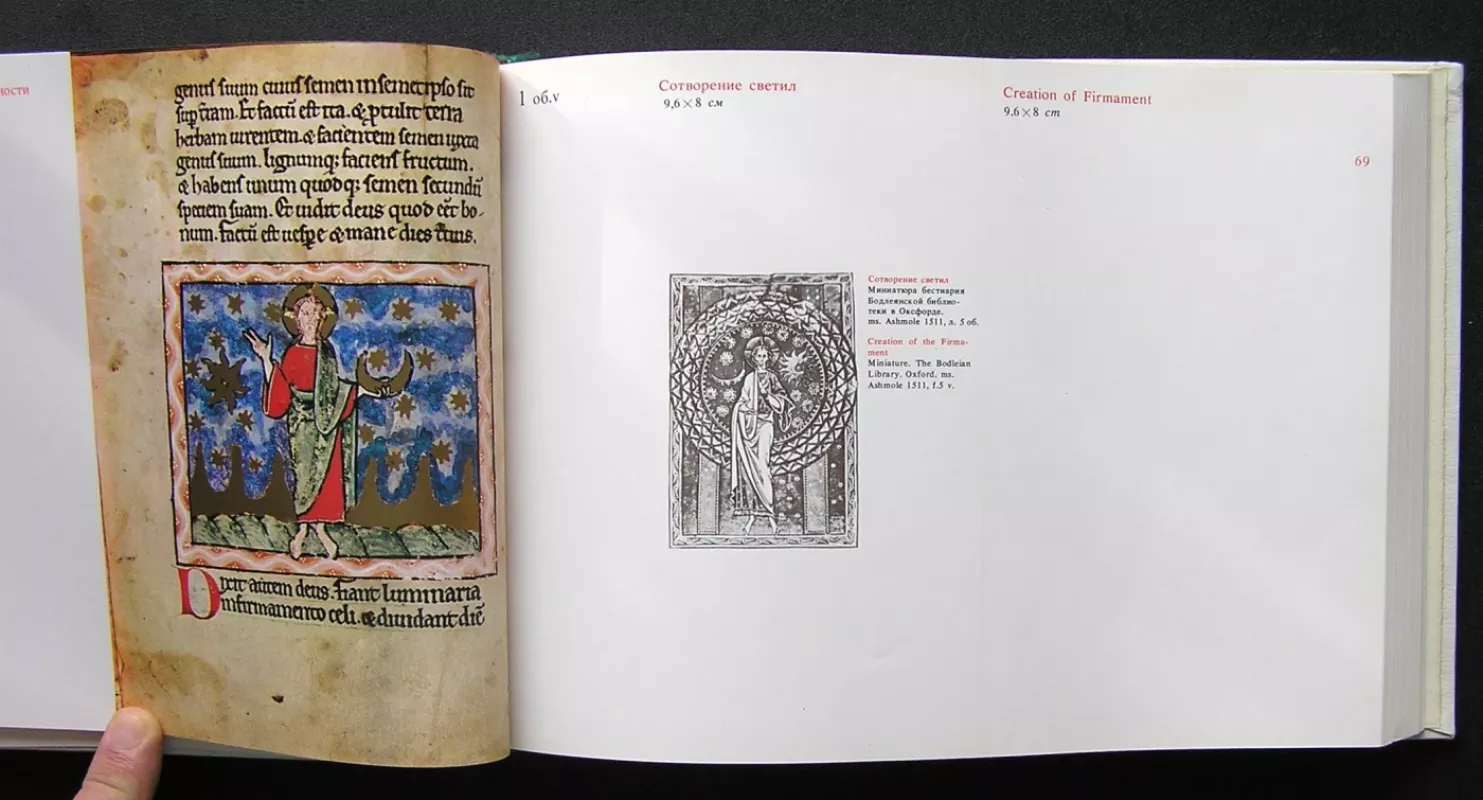 ности
genus suum cuius semen in semetipso sit
sup t̄iam. Et factū est ita. & ꝓtulit terra
herbam uirentem. & facientem semen iuxta
genus suum. lignumq; faciens fructum.
& habens unum quodq; semen secundū
speciem suam. Et uidit deus quod eēt bo-
num. factū est uesꝑe & mane dies
Dixit autem deus. fiant luminaria
in firmamento celi. & diuidant diē
1 об.v
Сотворение светил
9,6×8 см
Creation of Firmament
9.6×8 cm
69
Сотворение светил
Миниатюра бестиария
Бодлеянской библио-
теки в Оксфорде.
ms. Ashmole 1511, л. 5 об.
Creation of the Firma-
ment
Miniature. The Bodleian
Library. Oxford. ms.
Ashmole 1511, f.5 v.